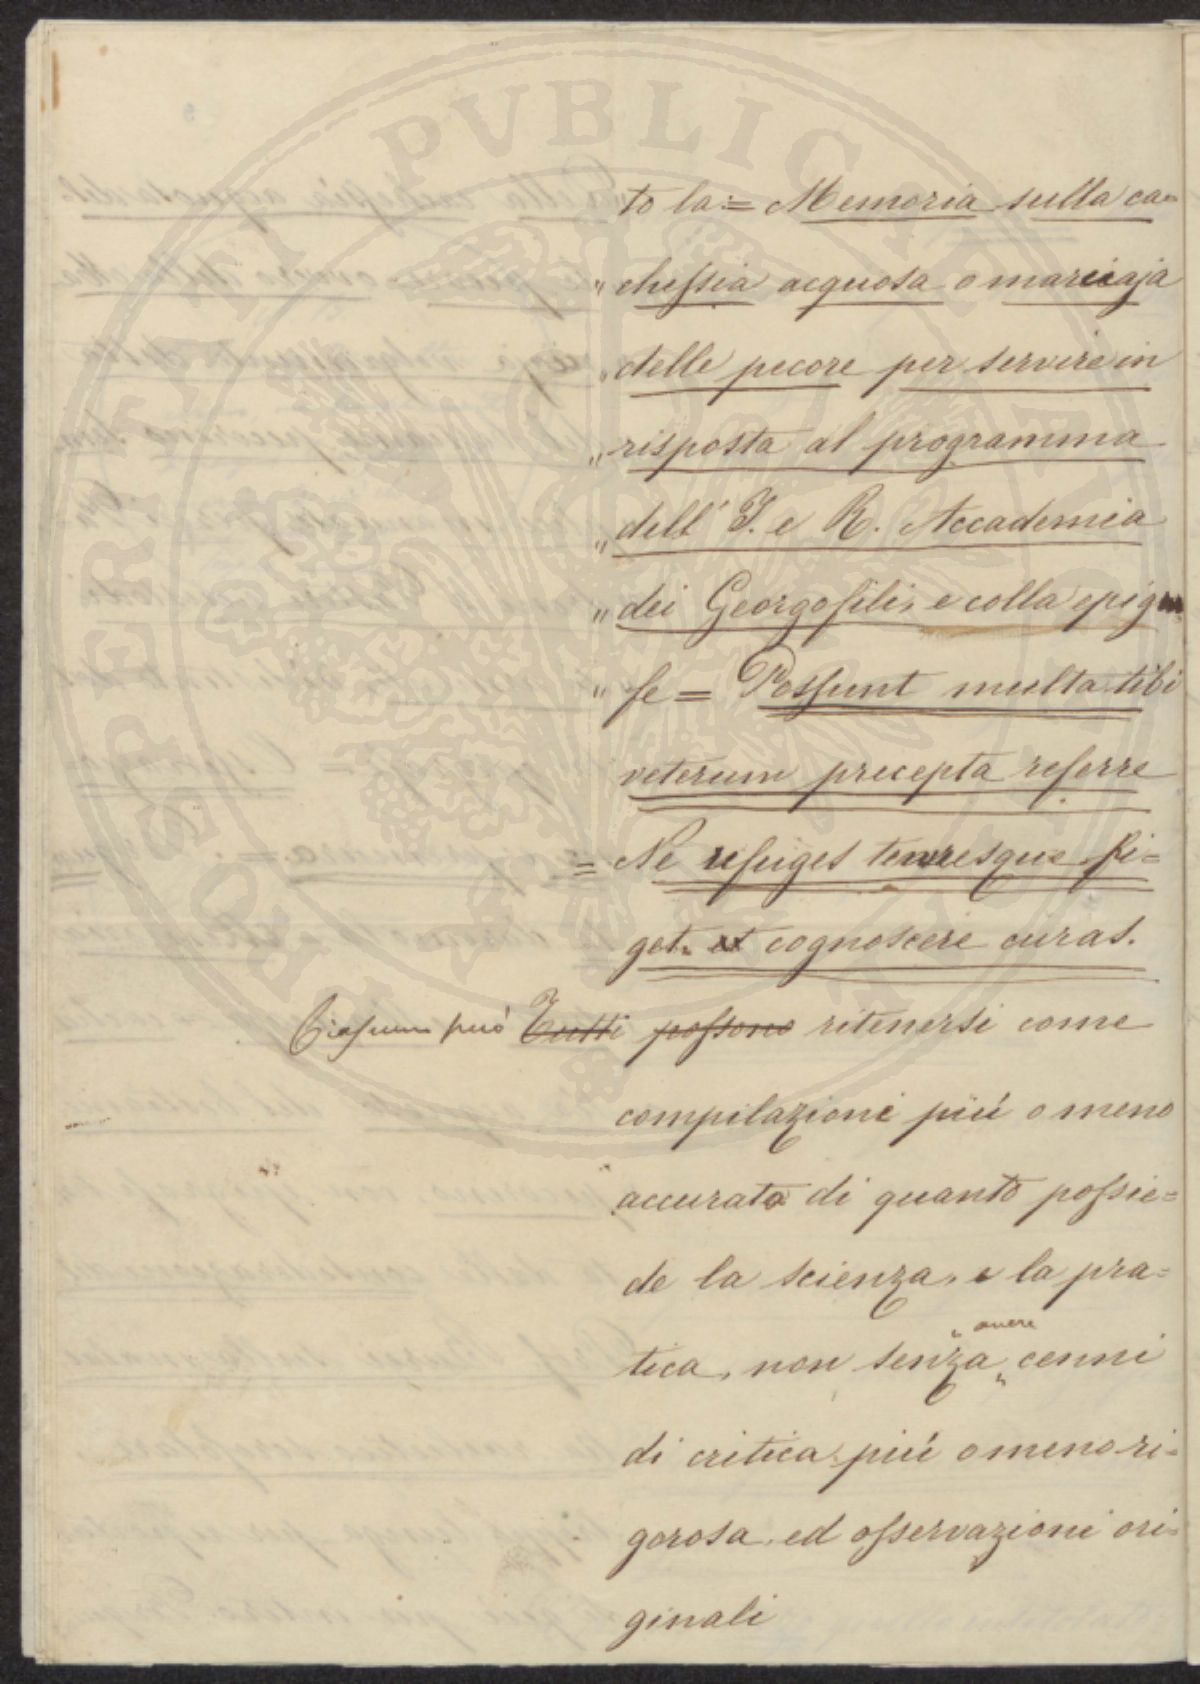 to la = Memoria sulla ca=
" chessia acquosa o marciaja
" delle pecore per servire in
" risposta al programma
" dell' I. e R. Accademia
" dei Georgofili, e colla epigra
" fe = Possunt multa tibi
veterum precepta referre
= Ne refuges tenuesque pi=
get. et cognoscere curas.
Ciascuna può Tutti possono ritenersi come
compilazione più o meno
accurata di quanto possie=
de la scienza, e la pra=
" avere
tica, non senza " cenni
di critica più o meno ri=
gorosa, ed osservazioni ori=
ginali
PROSPERITATI PVBLICAE AVGENDAE